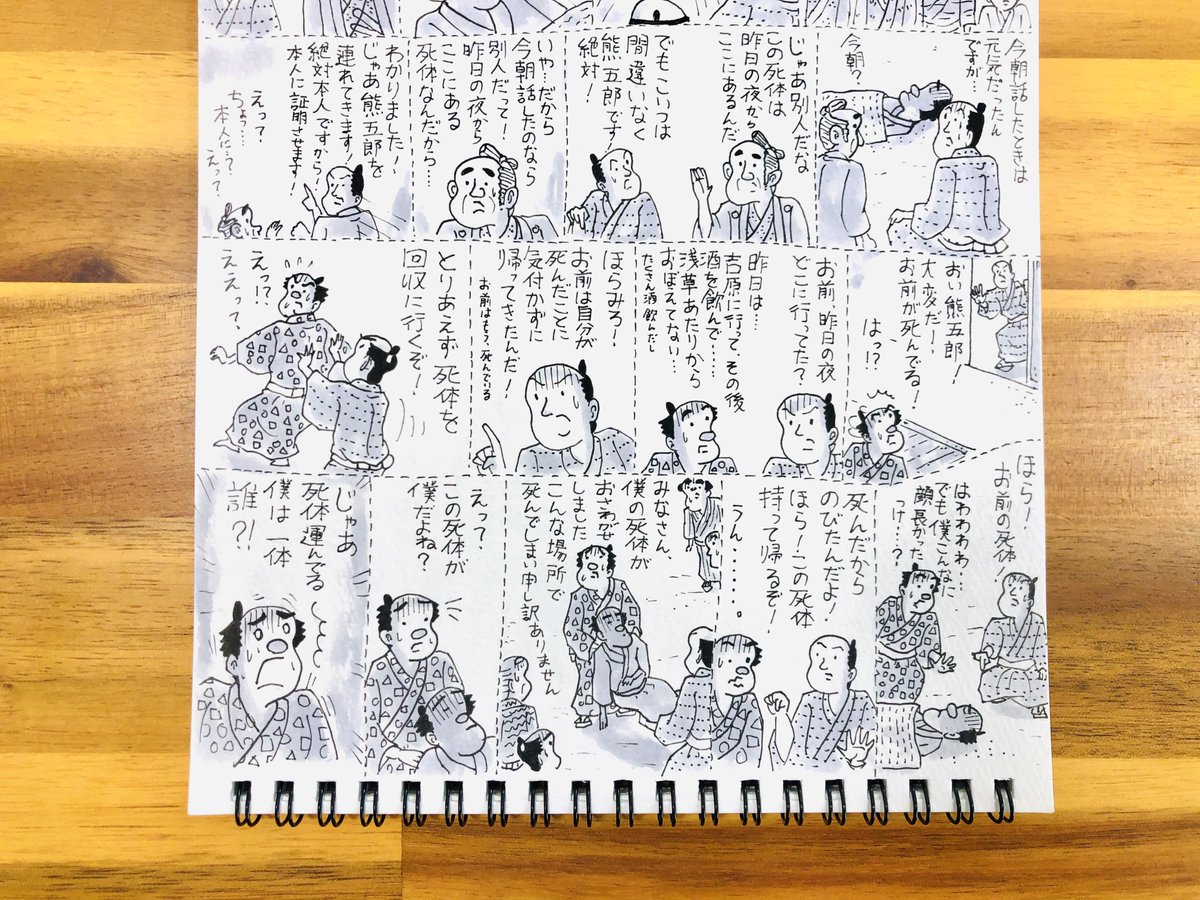 今朝話したときは
元気だったん
ですが…
今朝?
じゃあ別人だな
この死体は
昨日の夜から
ここにあるんだ
でもこいつは
間違いなく
熊五郎です!
絶対!
いや…だから
今朝話したのなら
別人だって!
昨日の夜から
ここにある
死体なんだから…
わかりました!
じゃあ熊五郎を
連れてきます!
絶対本人ですから!
本人に証明させます!
えって
ちょっ…
本人に?
えって
おい熊五郎!
大変だー!
お前が死んでる!
はっ!?
お前、昨日の夜
どこに行ってた?
昨日は…
吉原に行って、その後
酒を飲んで……
浅草あたりから
おぼえてない…
たくさん酒飲んだし
ほらみろ!
お前は自分が
死んだことに
気付かずに
帰ってきたんだ!
お前はもう、死んでいる
とりあえず死体を
回収に行くぞ!
えっ!?
ええって、
ほら!
お前の死体!
はわわわわ…
でも僕こんなに
顔長かった
っけ…?
死んだから
のびたんだよ!
ほら!この死体
持って帰るぞ!
うん・・・・・・。
みなさん、
僕の死体が
おさわがせ
しました
こんな場所で
死んでしまい申し訳ありません
えって、
この死体が
僕だよね?
じゃあ
死体運んでる
僕は一体
誰?!